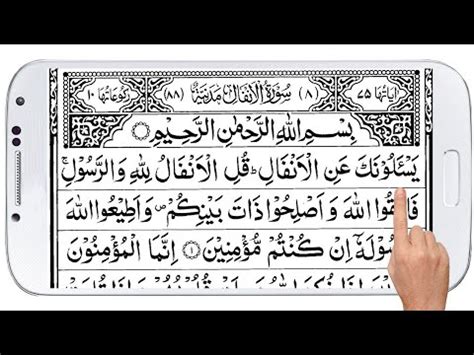 اٰيَاتُهَا ٧٥ (٨) سُوْرَةُ الْاَنْفَالِ مَدَنِيَّةٌ (٨٨) رُكُوْعَاتُهَا ١٠
بِسْمِ اللّٰهِ الرَّحْمٰنِ الرَّحِيْمِ
يَسْـَٔلُوْنَكَ عَنِ الْاَنْفَالِ ؕ قُلِ الْاَنْفَالُ لِلّٰهِ وَالرَّسُوْلِ ۚ
فَاتَّقُوا اللّٰهَ وَاَصْلِحُوْا ذَاتَ بَيْنِكُمْ ۪ وَاَطِيْعُوا اللّٰهَ
سُوْلَهٗۤ اِنْ كُنْتُمْ مُّؤْمِنِيْنَ ۝١ اِنَّمَا الْمُؤْمِنُوْنَ